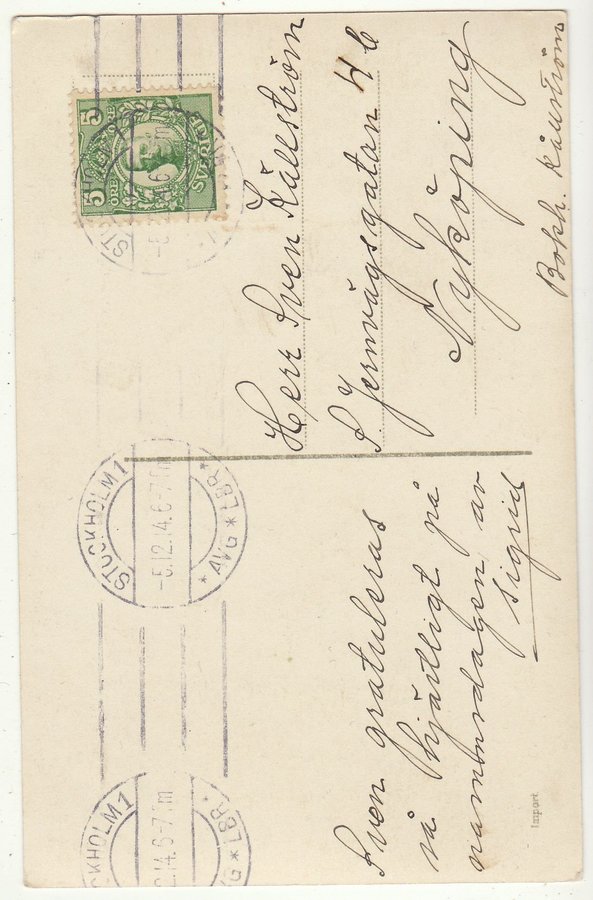 Sven gratuleras
så hjärtligt på
namnsdagen av
Sigrid
Herr Sven Källström
S. Jernvägsgatan 4 b
Nyköping
Bokh. Källström
SVERIGE
5 5
ÖRE ÖRE
STOCKHOLM 1
-5.12.14.6-7.m
* AVG * LBR *
STOCKHOLM 1
2.14.6-7.m
AVG * LBR *
Import